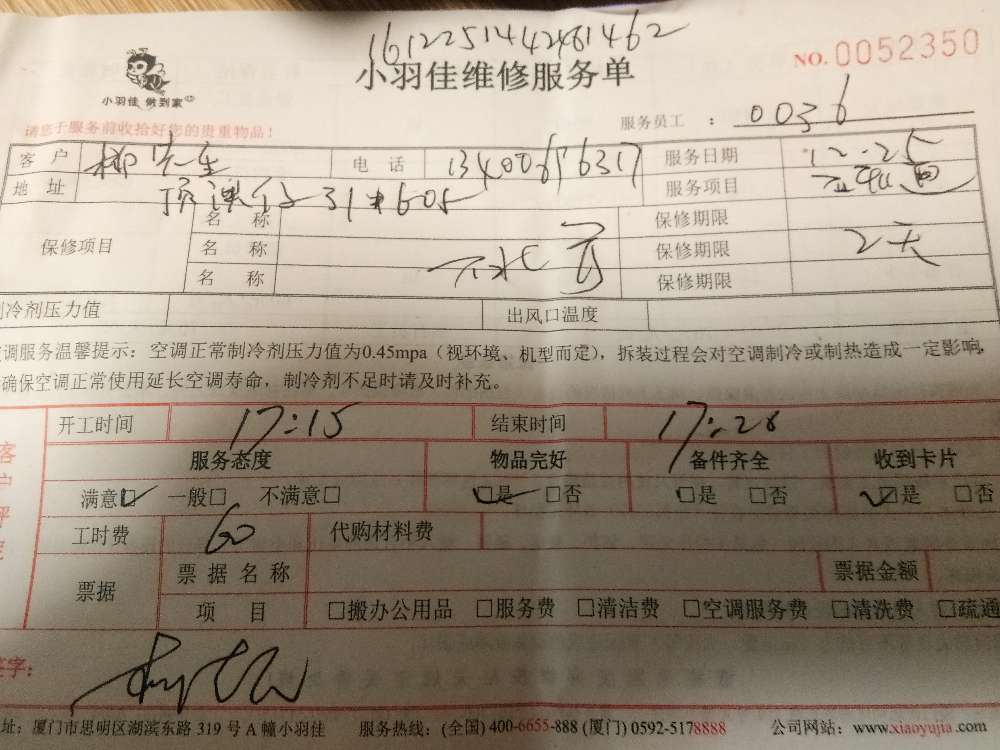 1612251442481462
小羽佳维修服务单 NO.0052350
小羽佳 做到家
请您于服务前收拾好您的贵重物品!
服务员工 : 0036
客户 柳先生 电话 服务日期 12.25
地址 31#605 服务项目
保修项目 名称 保修期限
名称 保修期限 2天
名称 保修期限
冷剂压力值 出风口温度
调服务温馨提示:空调正常制冷剂压力值为0.45mpa(视环境、机型而定),拆装过程会对空调制冷或制热造成一定影响,
确保空调正常使用延长空调寿命,制冷剂不足时请及时补充。
开工时间 17:15 结束时间 17:28
服务态度 物品完好 备件齐全 收到卡片
满意☑ 一般□ 不满意□ ☑是 □否 □是 □否 ☑是 □否
工时费 60 代购材料费
票据 票据名称 票据金额
项目 □搬办公用品 □服务费 □清洁费 □空调服务费 □清洗费 □疏通
签字:
址:厦门市思明区湖滨东路 319 号 A 幢小羽佳 服务热线:(全国) 400-6655-888 (厦门) 0592-5178888 公司网站:www.xiaoyujia.com